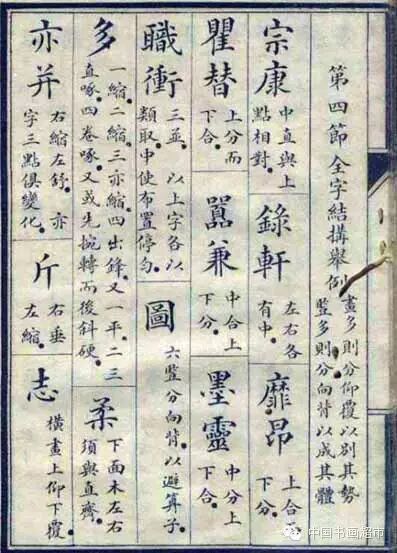 第四節 全字結構舉例
畫多則分仰覆以別其勢
豎多則分向背以成其體
宗康
中直與上
點相對。
錄軒
左右各
有中。
靡昂
上合而
下分。
瞿替
上分而
下合。
囂兼
中合上
下分。
墨靈
中分上
下合。
職衝
三並。以上字各以
類取中使布置停勻。
圖
六豎分向背。以避算子。
多
一縮。二縮。三亦縮。四出鋒。又一平。二三
直啄。四卷啄。又或先捥轉而後斜硬。
柔
下面木左右
須與直齊。
亦并
右縮左舒。亦
字三點俱變化。
斤
右垂
左縮。
志
橫畫上仰下覆。
中国书画超市